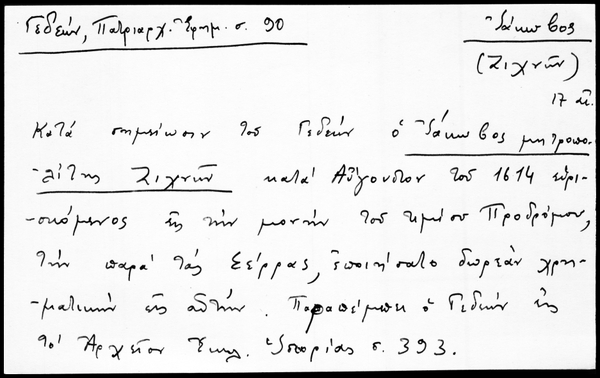 Γεδεών, Πατριαρχ. Ἐφημ. σ. 90
Ἰάκωβος
(Ζιχνῶν)
17 αἰ.
Κατά σημείωσιν τοῦ Γεδεών ὁ Ἰάκωβος μητροπο-
-λίτης Ζιχνῶν κατά Αὔγουστον τοῦ 1614 εὑρι-
-σκόμενος εἰς τήν μονήν τοῦ τιμίου Προδρόμου,
τήν παρά τάς Σέρρας, ἐποιήσατο δωρεάν χρη-
-ματικήν εἰς αὐτήν. Παραπέμπει ὁ Γεδεών εἰς
τό Ἀρχεῖον Ἐκκλ. Ἱστορίας σ. 393.